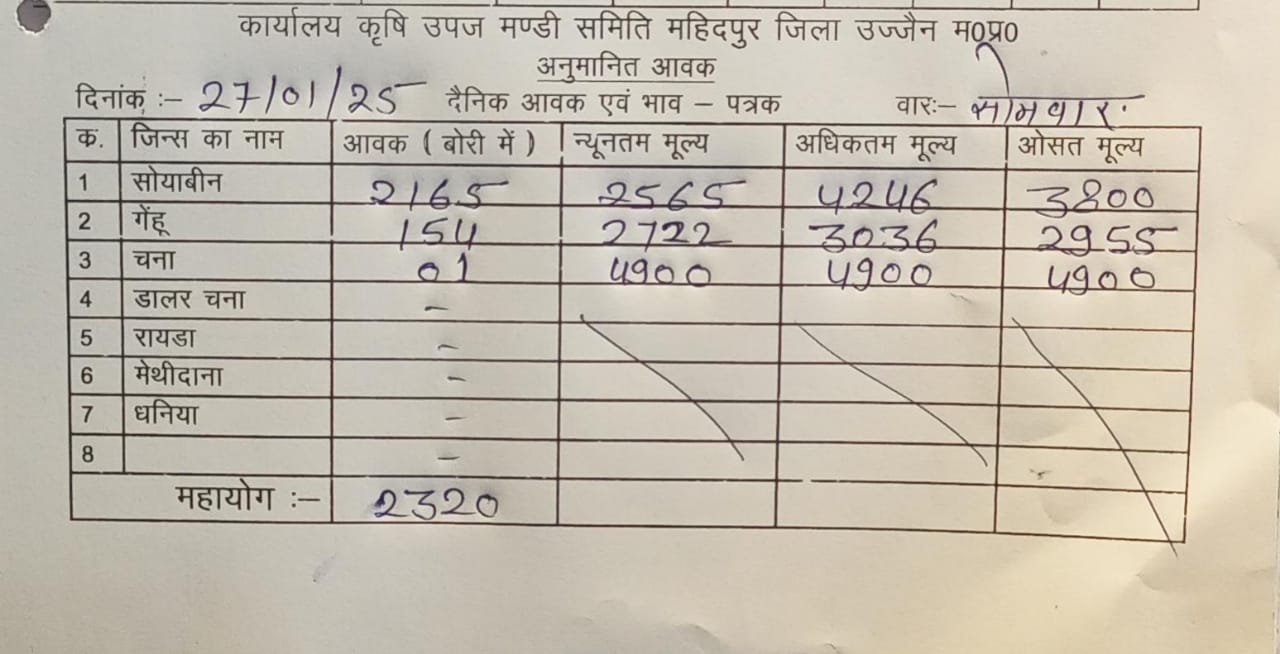 कार्यालय कृषि उपज मण्डी समिति महिदपुर जिला उज्जैन म०प्र०
अनुमानित आवक
दिनांक :– 27/01/25 दैनिक आवक एवं भाव – पत्रक वारः– सोमवार
क. जिन्स का नाम आवक ( बोरी में ) न्यूनतम मूल्य अधिकतम मूल्य ओसत मूल्य
1 सोयाबीन 2165 2565 4246 3800
2 गेंहू 154 2722 3036 2955
3 चना 01 4900 4900 4900
4 डालर चना –
5 रायडा –
6 मेथीदाना –
7 धनिया –
8 –
महायोग :– 2320